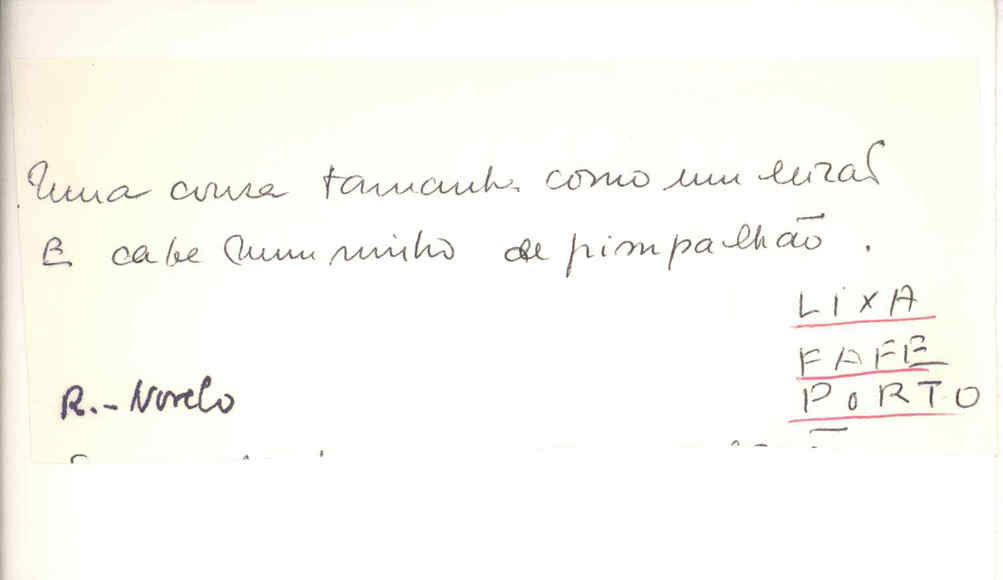 Uma cousa tamanha como um eirad
E cabe num ninho de pimpalhão.
LIXA
FAFE
PORTO
R.- Novelo